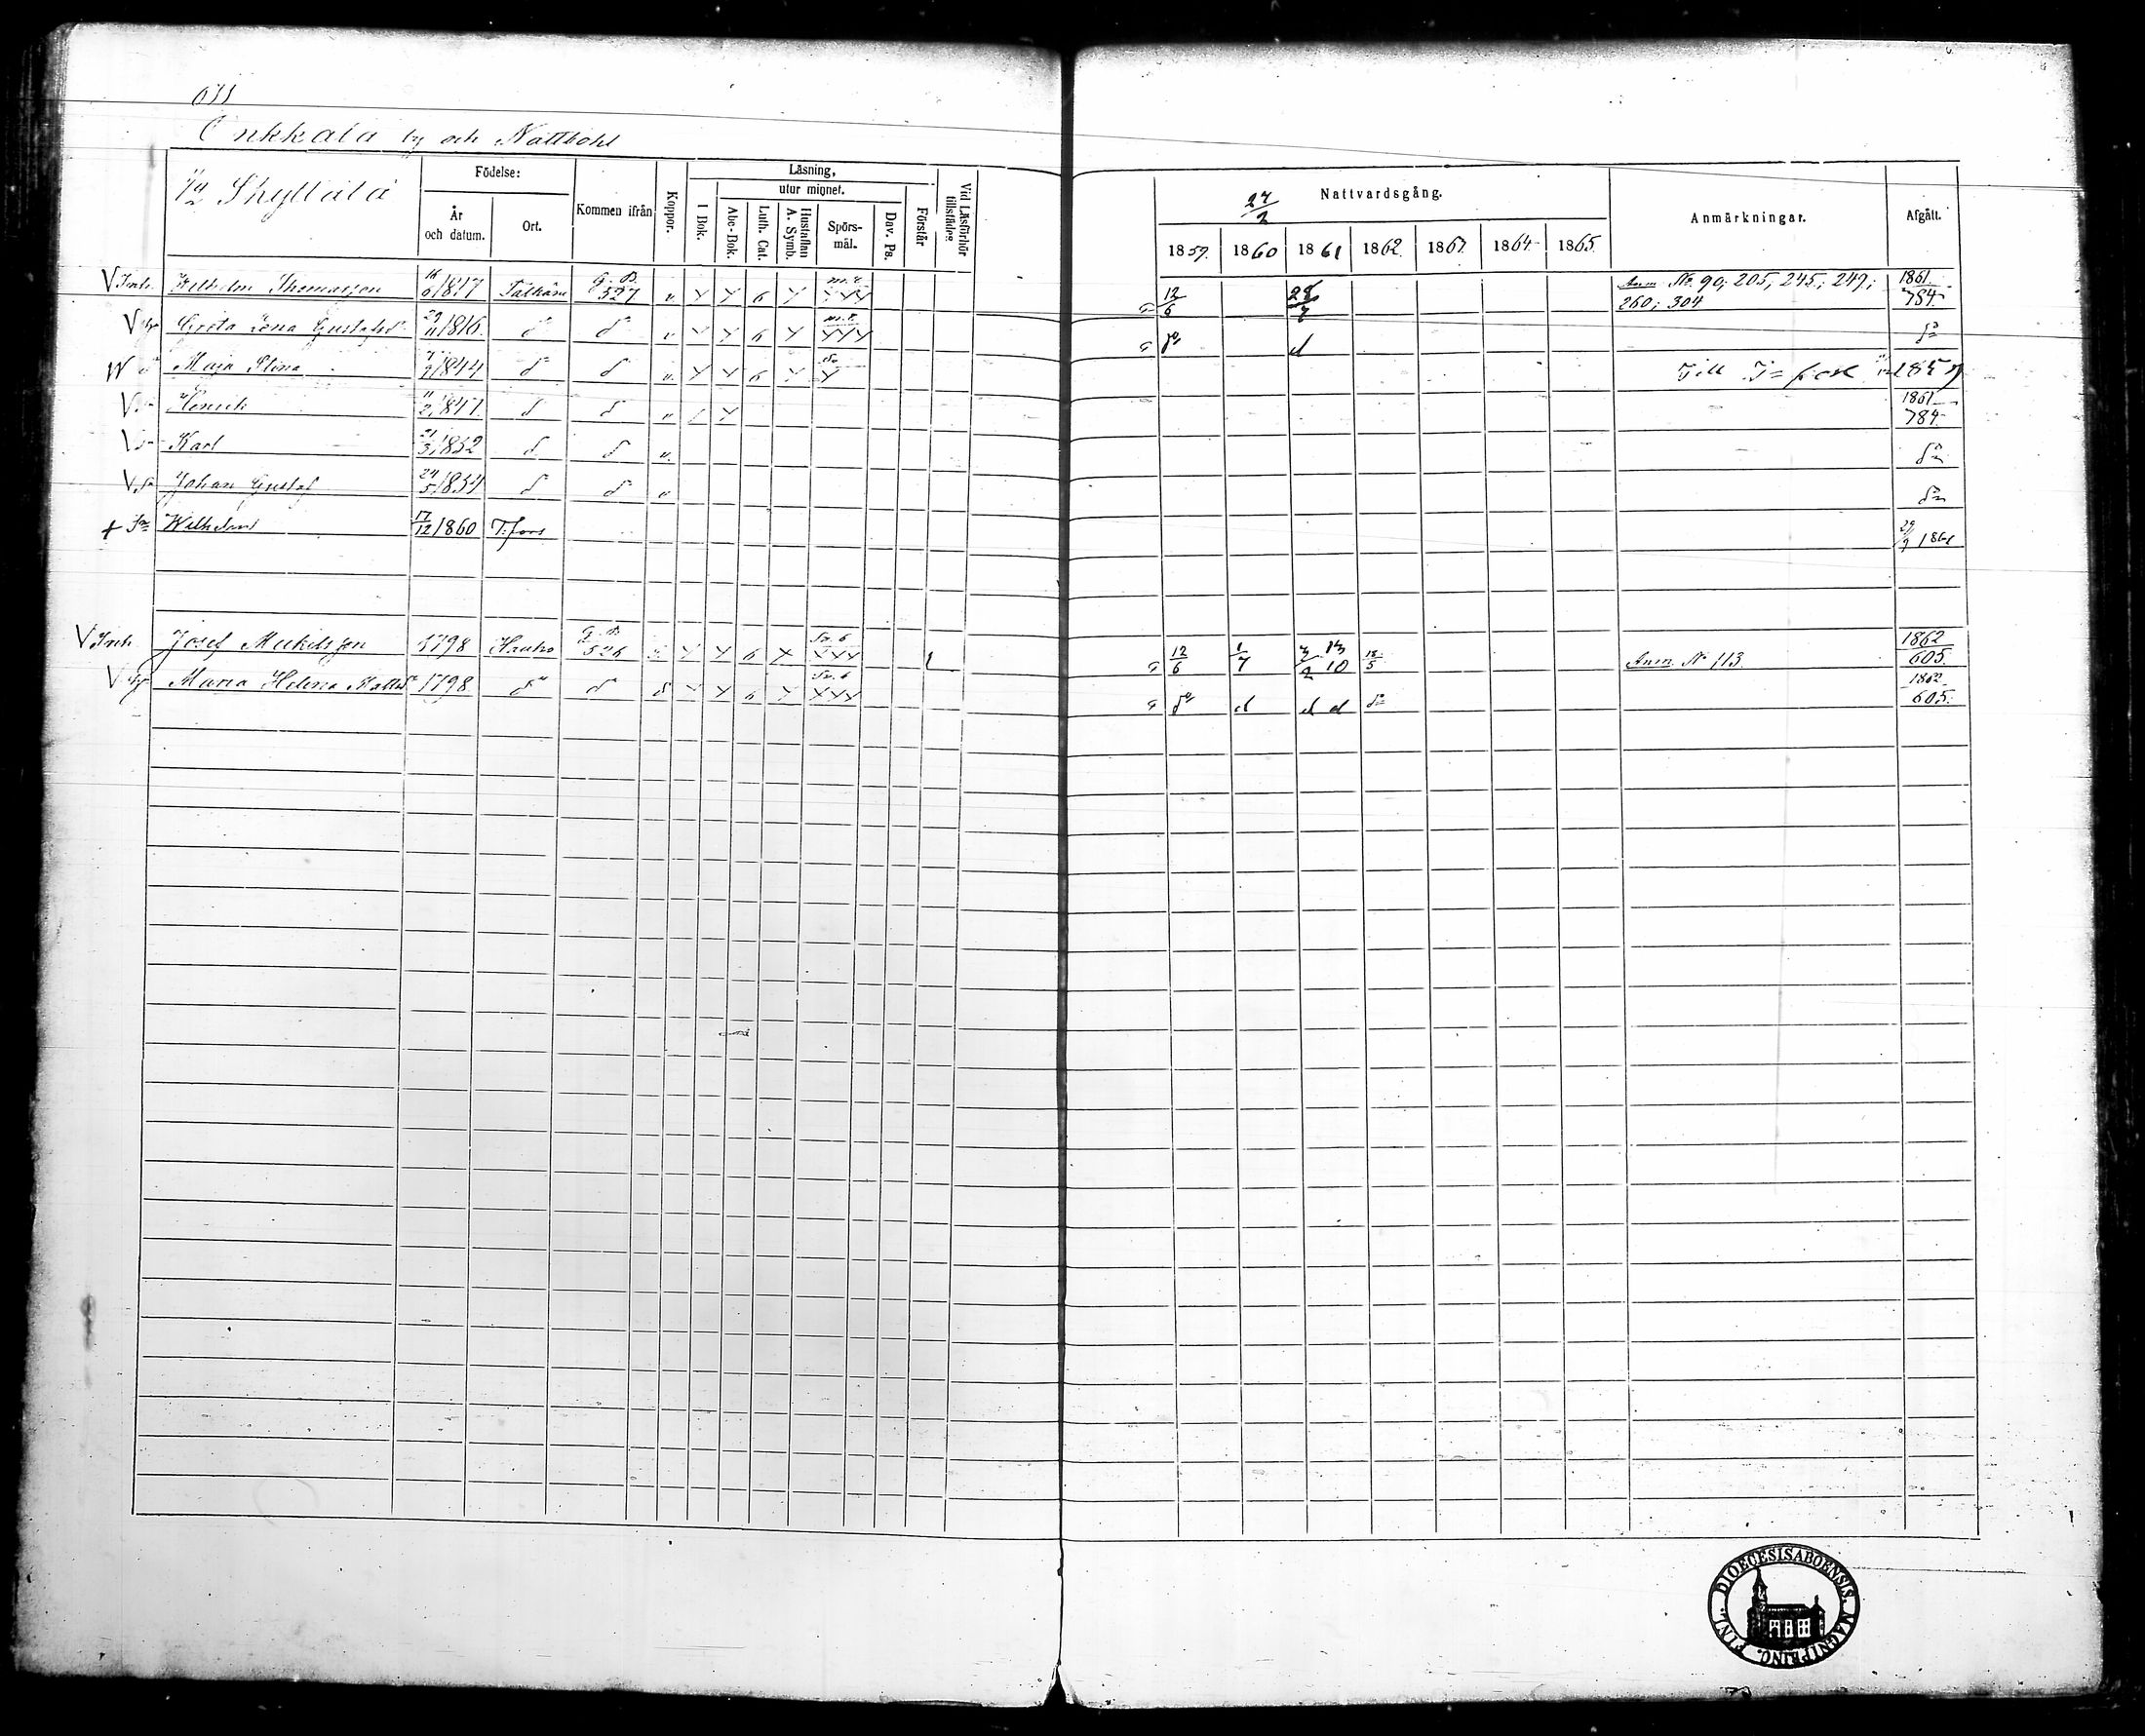 Onkkala by och Nattbohl
1/2 Skyttälä
Födelse:
År och datum.
Ort.
Kommen ifrån
Koppor.
Läsning,
I Bok.
utur minnet.
Abc-Bok.
Luth. Cat.
Hustaflan A. Symb.
Spörs-mål.
Dav. Ps.
Förstår
Vid Läsförhör tillstädes
Nattvardsgång.
27/2
1859. 1860 1861 1862. 1863. 1864 1865.
Anmärkningar.
Afgått.
V Inh. Wilhelm Thomasson 16/6 1817 Pälkäne G. B. 527 v x x 6 x xxx 12/6 Anm No. 90; 205; 245; 249; 260; 304 1861 784
V Greta Lena Gustafsd 29/11 1816. d:o d:o v x x 6 x xxx d:o d d:o
Maja Stina 1844 d d v x x 6 x x Till 1857
V Henrik 1847 d d v 1861 784
V Karl 21/3 1852 d d v d:o
V Johan Gustaf 24/5 1854 d d v d:o
+ Wilhelm 17/12 1860 T.fors 1861
V Inh. Josef Mickelsson 1798 Hauho G. B. 526 x x 6 x xxx 12/6 1/7 13/10 18/5 Anm. No 113. 1862 605.
V Maria Helena Mattsd 1798 d:o d:o x x 6 x xxx d:o d d d d:o 1862 605.
FINL. DIOECESIS ABOENSIS. MAGNI PRINC.